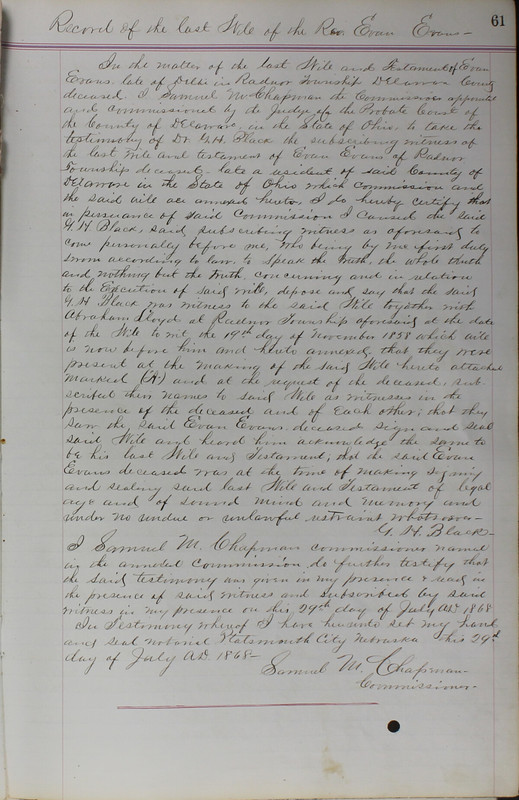 61
Record of the last Will of the Rev. Evan Evans—
In the matter of the last Will and Testament of Evan
Evans late of Delhi in Radnor Township Delaware County
deceased. I Samuel M. Chapman the Commissioner appointed
and Commissioned by the Judge of the Probate Court of
the County of Delaware, in the State of Ohio, to take the
testimony of Dr. G. H. Black the subscribing witness of
the last will and testament of Evan Evans of Radnor
Township deceased late a resident of said County of
Delaware in the State of Ohio which commission and
the said will are annexed hereto, I do hereby certify that
in pursuance of said Commission I caused the said
G. H. Black, said subscribing witness as aforesaid to
come personally before me, who being by me first duly
sworn according to law, to speak the truth, the whole truth
and nothing but the truth, concerning and in relation
to the Execution of said Will, depose and say that the said
G. H. Black was witness to the said Will together with
Abraham Lloyd at Radnor Township aforesaid at the date
of the Will to wit, the 19th day of November 1858 which will
is now before him and hereto annexed, that they were
present at the making of the said Will hereto attached
marked (A) and at the request of the deceased, sub-
scribed their names to said Will as witnesses in the
presence of the deceased and of Each other; that they
saw the said Evan Evans deceased sign and seal
said Will and heard him acknowledge the same to
be his last Will and Testament; that the said Evan
Evans deceased was at the time of making signing
and sealing said last Will and Testament of legal
age and of sound mind and memory and
under no undue or unlawful restraint whatsoever—
G. H. Black—
I Samuel M. Chapman commissioner named
in the annexed Commission, do further testify that
the said testimony was given in my presence & read in
the presence of said witness and subscribed by said
witness in my presence on this 29th day of July A.D. 1868
In Testimony whereof I have hereunto set my hand
and seal notarial Platsmouth City Nebraska this 29th
day of July A.D. 1868—
Samuel M. Chapman—
Commissioner—